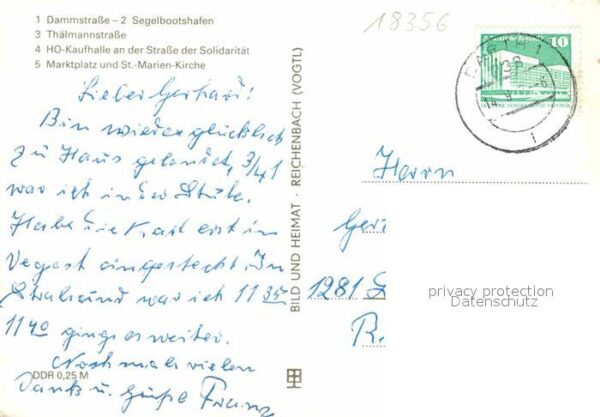 1 Dammstraße – 2 Segelbootshafen
3 Thälmannstraße
4 HO-Kaufhalle an der Straße der Solidarität
5 Marktplatz und St.-Marien-Kirche
18356
10
Lieber Gerhard!
Bin wieder glücklich
zu Haus gelandet, 3/4 1
war ich in der Stube.
Habe die Karte erst in
eingesteckt. In
Stralsund war ich 11 35
11 40 ging es weiter.
Nochmals vielen
Dank u. Grüße Franz
DDR 0,25 M
BILD UND HEIMAT · REICHENBACH (VOGTL)
Herrn
Ger
1281
R.
privacy protection
Datenschutz